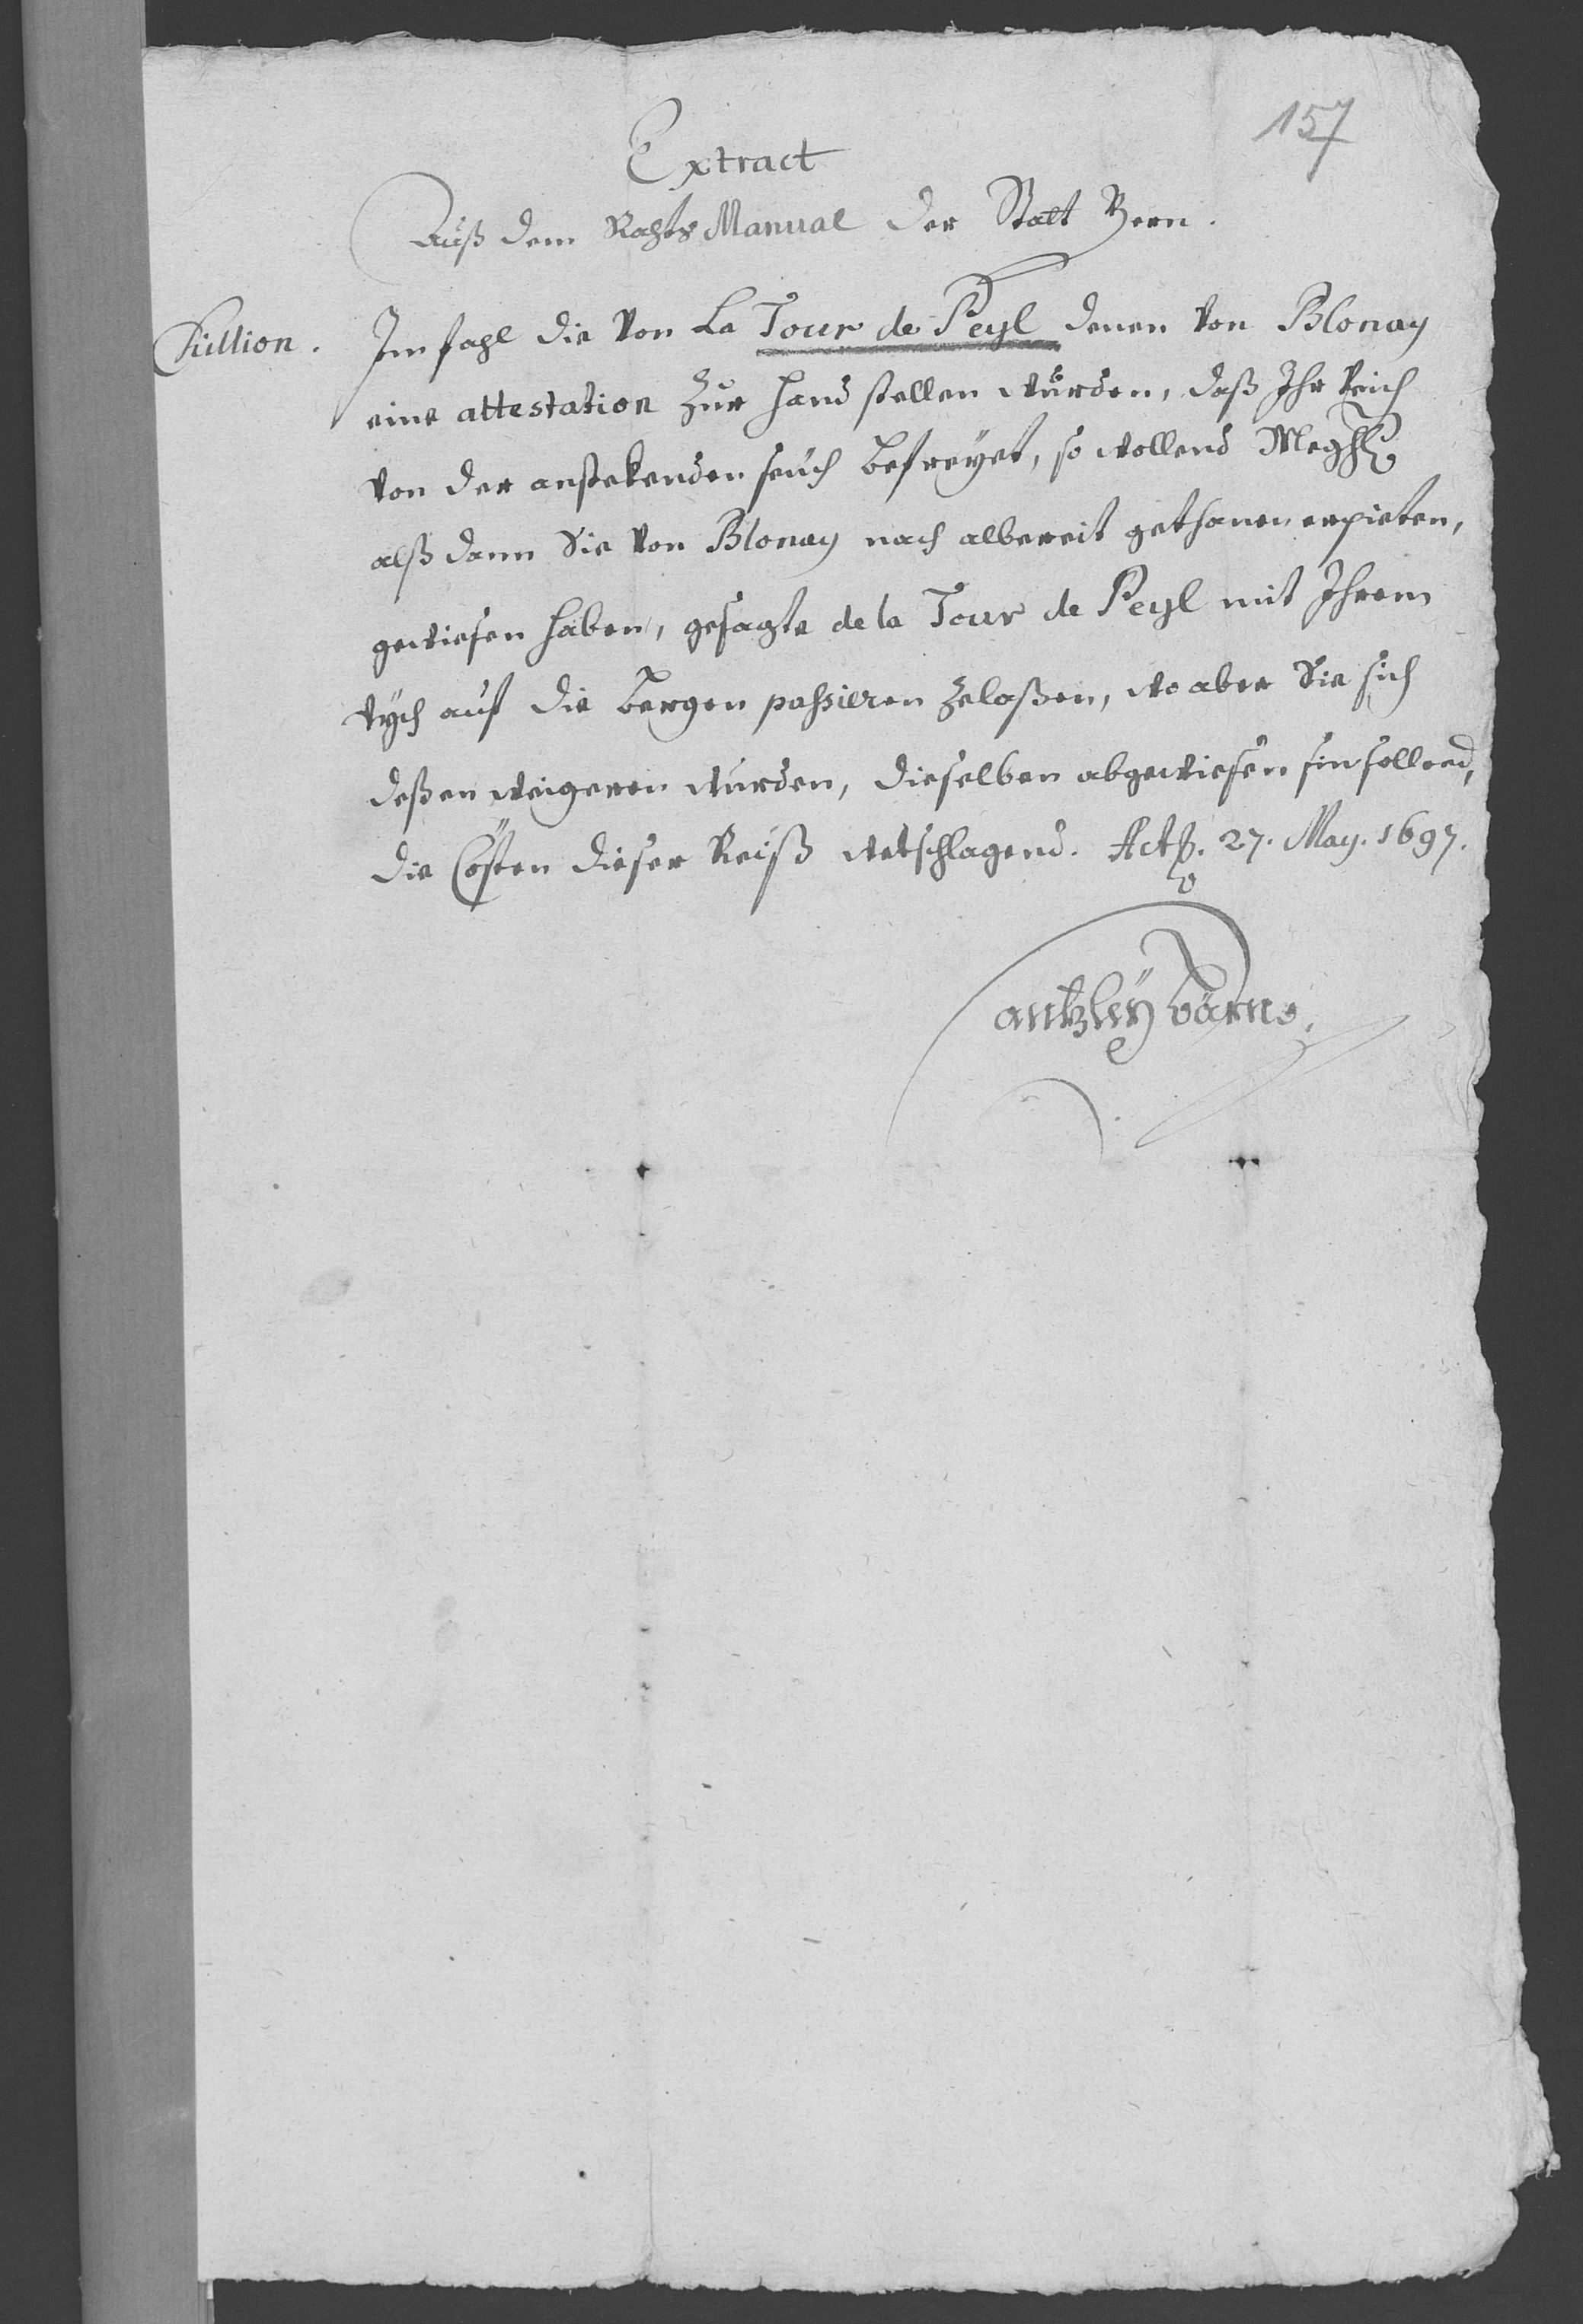 157
Extract
Auß dem Rahts Manual der Statt Bern.
Chillion. Im fahl die von La Tour de Peyl denen von Blonay
eine attestation zur hand stellen wurden, daß Ihr Veich
von der anstekenden seuch befreyet, so wollend MegHh.
alß dann die von Blonay nach albereit gethanen erpieten,
gewiesen haben, gesagte de la Tour de Peyl mit Ihrem
vych auf die bergen passieren zelaßen, wo aber Sie sich
deßen weigeren wurden, dieselben abgewiesen sin sollend,
die Cösten dieser Reiß wetschlagend. Actß. 27. May. 1697.
Cantzley Bärn.